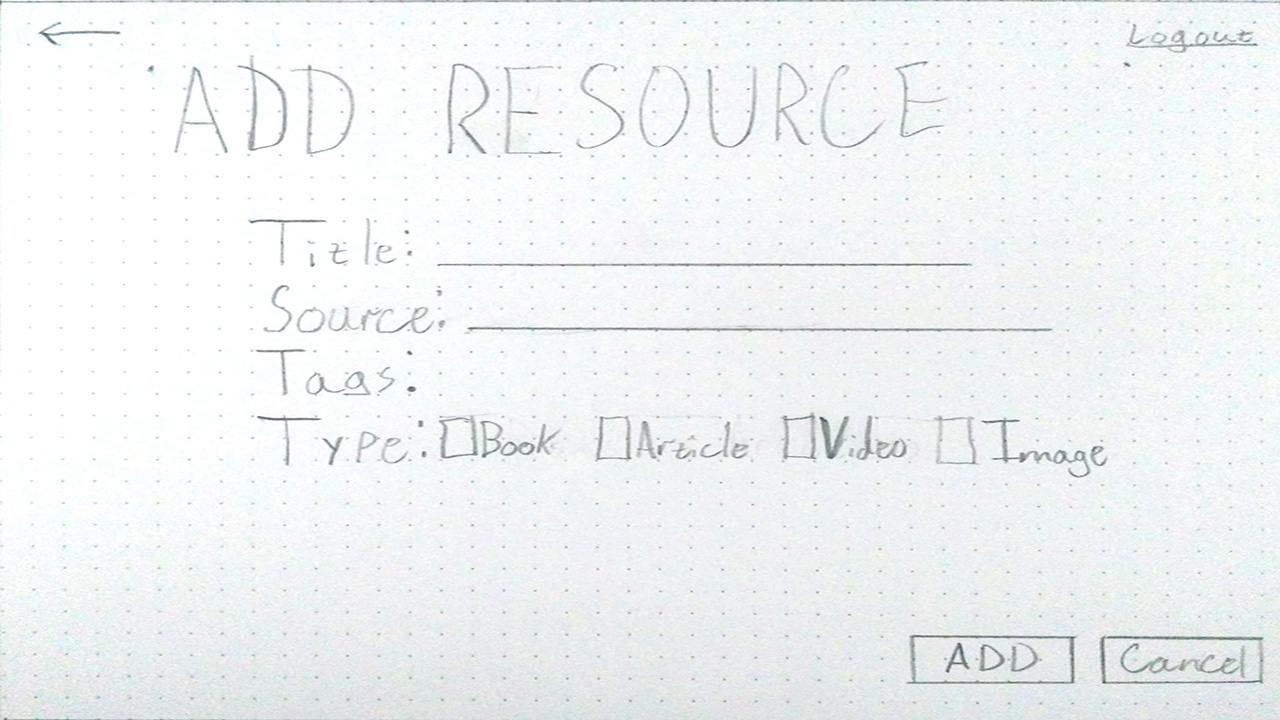 Logout
ADD RESOURCE
Title:
Source:
Tags:
Type: Book Article Video Image
ADD Cancel